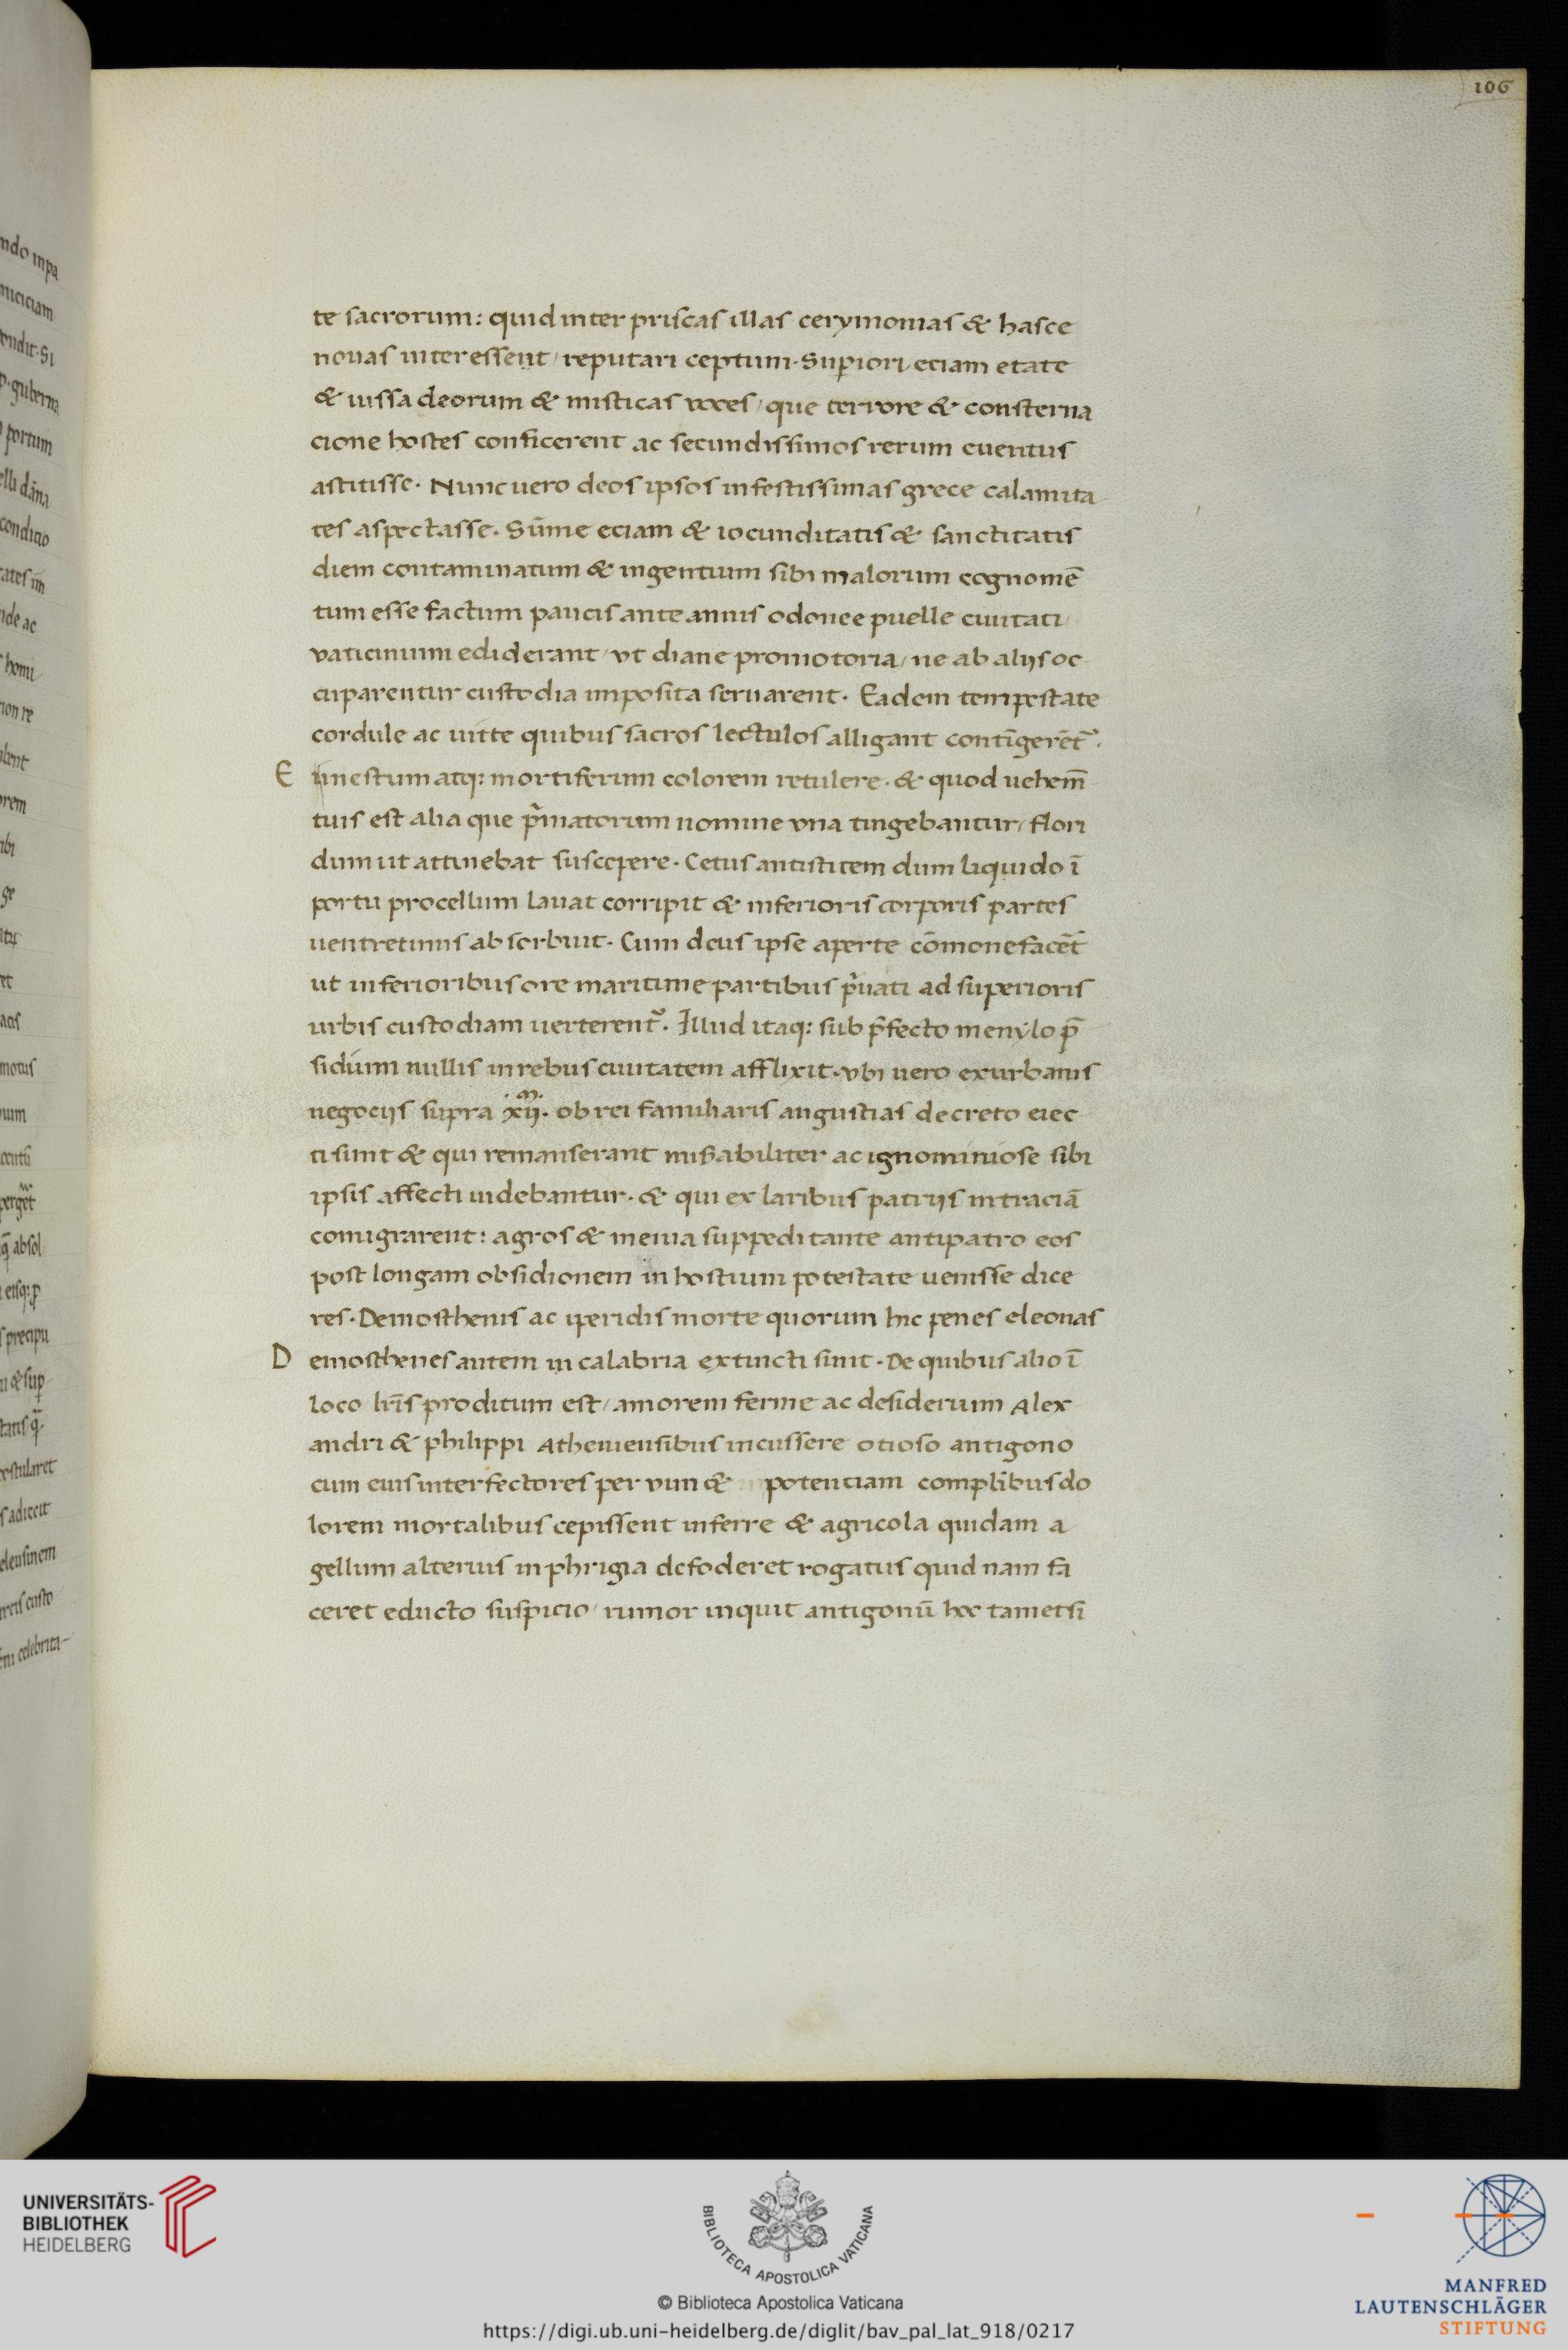 106
te sacrorum: quid inter priscas illas cerymonias & hasce
nouas interessent / reputari ceptum. Superiori eciam etate
& iussa deorum & misticas voces / que terrore & consterna
cione hostes conficerent ac secundissimos rerum euentus
astitisse. Nunc uero deos ipsos infestissimas grece calamita
tes aspectasse. Sūme eciam & iocunditatis & sanctitatis
diem contaminatum & ingentium sibi malorum cognomē
tum esse factum paucis ante annis odonee puelle ciuitati /
vaticinium ediderant / vt diane promotoria / ne ab alijs oc
cuparentur custodia imposita seruarent. Eadem tempestate
cordule ac uitte quibus sacros lectulos alligant contīgerēt̃.
E unestum atq: mortiferum colorem retulere. & quod uehem̄
tius est alia que p̃inatorum nomine vna tingebantur / flori
dum ut attinebat suscepere. Cetus antistitem dum liquido ī
portu procellum lauat corripit & inferioris corporis partes
uentretinus absorbuit. Cum deus ipse aperte cōmonefacēt̃
ut inferioribus ore maritime partibus p̃uati ad superioris
urbis custodiam uerterent̃. Illud itaq: sub p̃fecto menylo p̄
sidium nullis in rebus ciuitatem afflixit. vbi uero exurbanis
negocijs supra .xij.m ob rei familiaris angustias decreto eiec
ti sunt & qui remanserant mis̃abiliter ac ignominiose sibi
ipsis affecti uidebantur. & qui ex laribus patrijs in traciā
comigrarent: agros & menia suppeditante antipatro eos
post longam obsidionem in hostium potestate uenisse dice
res. Demosthenis ac iperidis morte quorum hic penes eleonas
D emosthenes autem in calabria extincti sunt. De quibus alio ī
loco lr̄is proditum est / amorem ferme ac desiderium Alex
andri & philippi Atheniensibus incussere otioso antigono
cum eius interfectores per vim & potentiam complībus do
lorem mortalibus cepissent inferre & agricola quidam a
gellum alterius in phrigia defoderet rogatus quid nam fa
ceret educto suspicio / rumor inquit antigonū hoc tametsi
UNIVERSITÄTS-
BIBLIOTHEK
HEIDELBERG
BIBLIOTECA APOSTOLICA VATICANA
© Biblioteca Apostolica Vaticana
https://digi.ub.uni-heidelberg.de/diglit/bav_pal_lat_918/0217
MANFRED
LAUTENSCHLÄGER
STIFTUNG